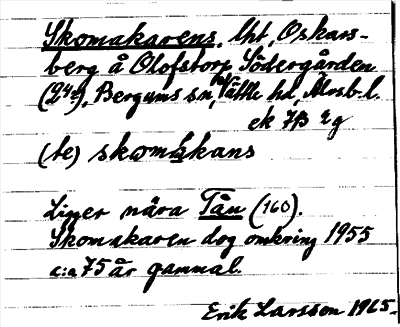 Skomakarens, lht, Oskars-
berg å Olofstorp Södergården
(2⁴ᵃ), Bergums sn, Vättle hd, Älvsb. l.
ek 7B 2g
(te) skomakans
Ligger nära Tån (160).
Skomakaren dog omkring 1955
c:a 75 år gammal.
Erik Larsson 1965.